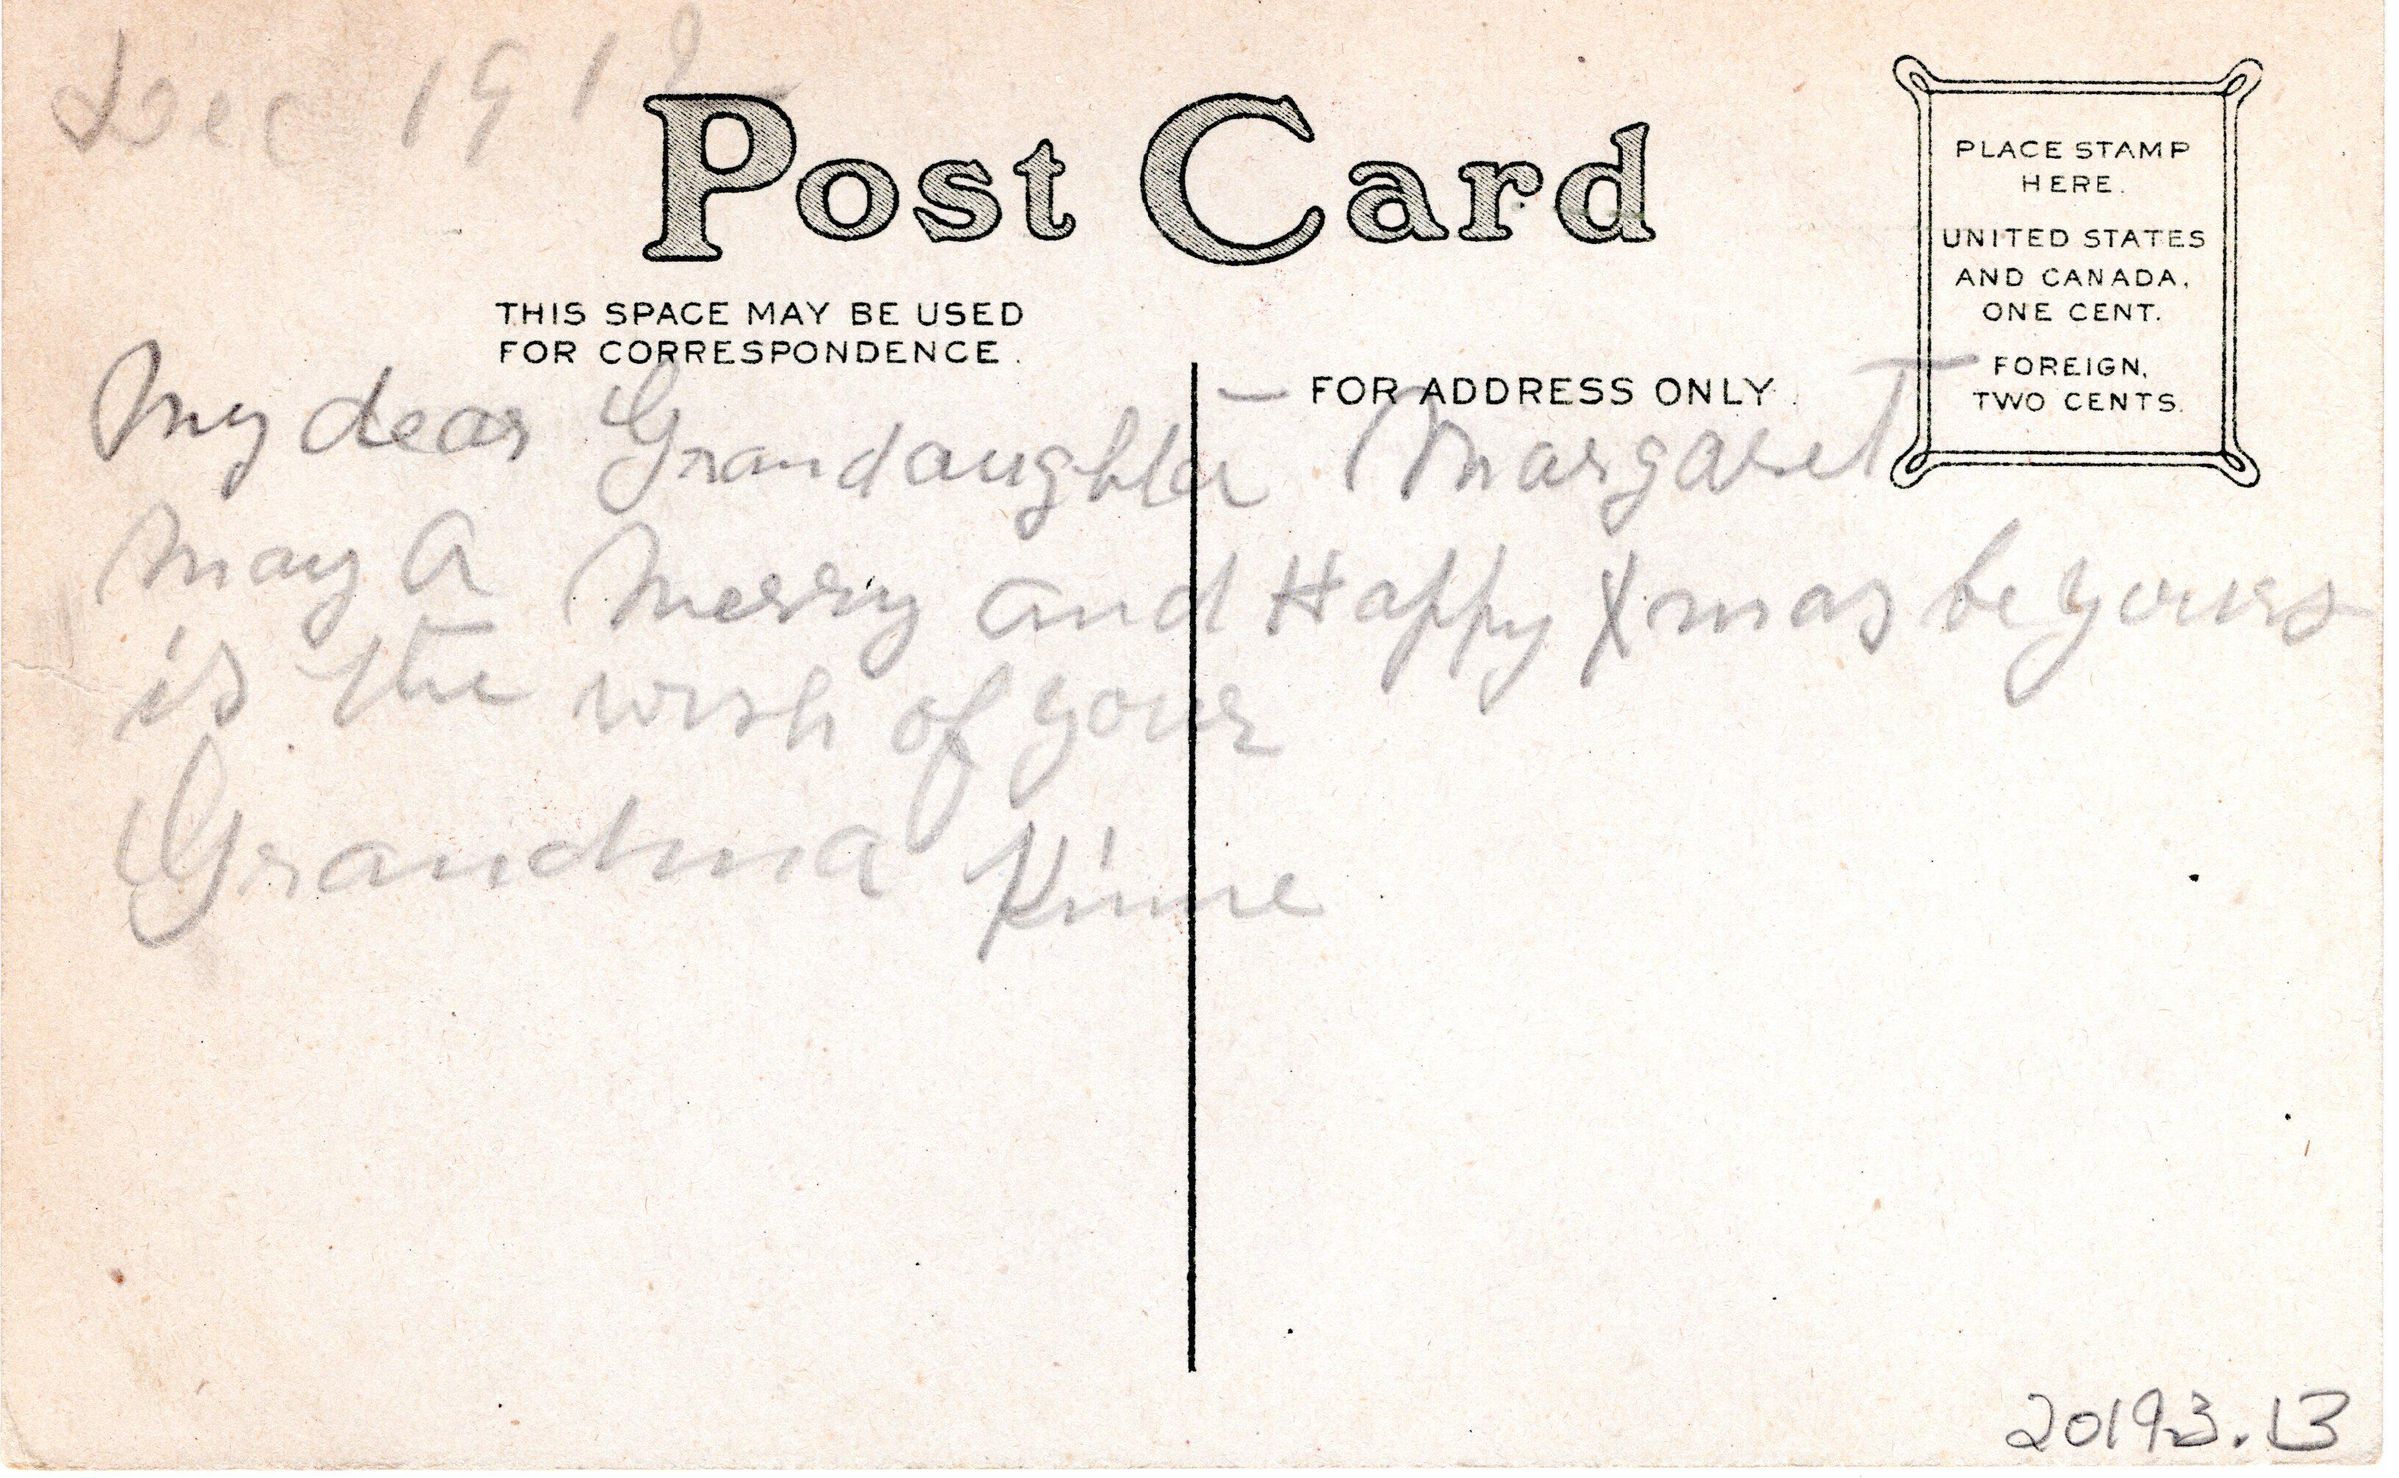 Dec 1912
Post Card
PLACE STAMP
HERE.
UNITED STATES
AND CANADA,
ONE CENT.
FOREIGN,
TWO CENTS.
THIS SPACE MAY BE USED
FOR CORRESPONDENCE.
FOR ADDRESS ONLY.
My dear Grandaughter - Margaret
may a Merry and Happy Xmas be yours
is the wish of your
Grandma Kinne
2019.3.13